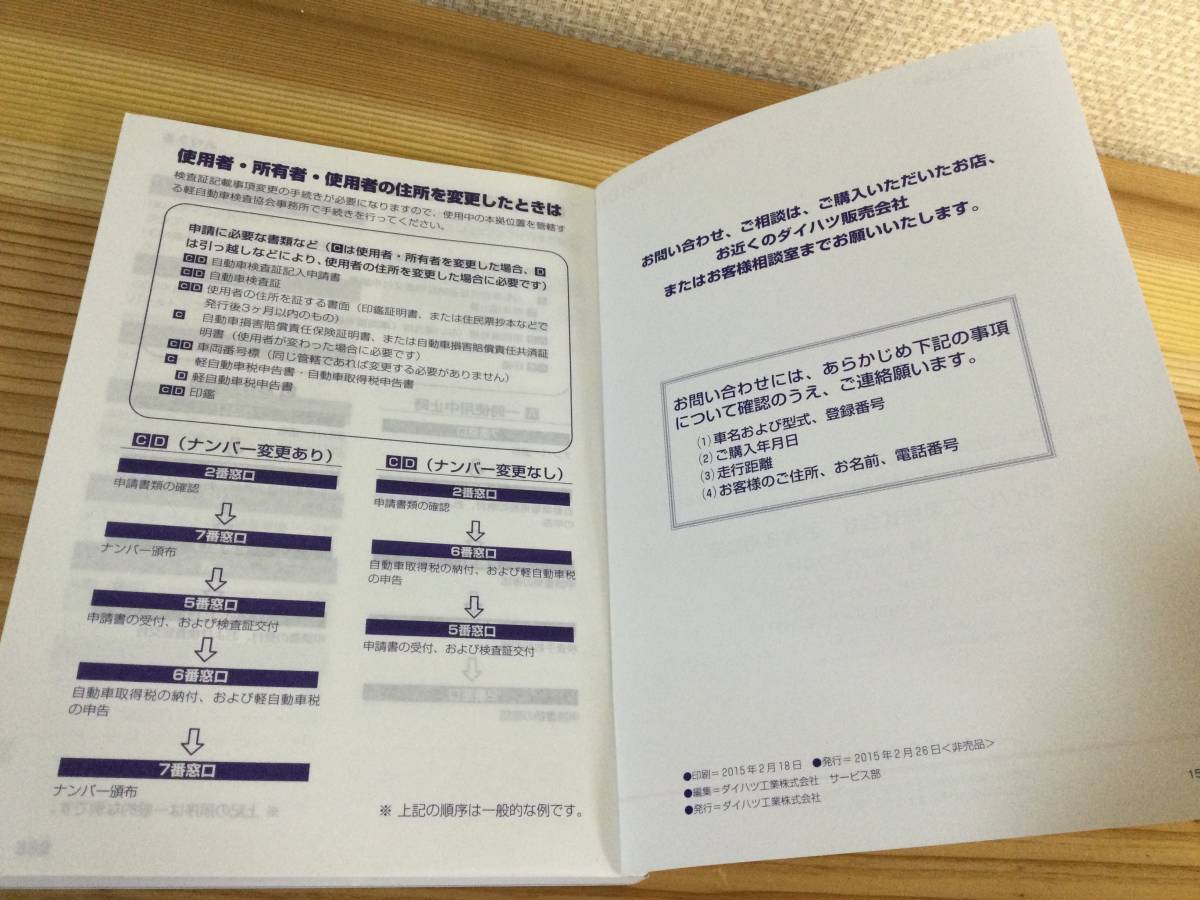 使用者・所有者・使用者の住所を変更したときは
検査証記載事項変更の手続きが必要になりますので、使用中の本拠位置を管轄す
る軽自動車検査協会事務所で手続きを行ってください。
申請に必要な書類など（Cは使用者・所有者を変更した場合、D
は引っ越しなどにより、使用者の住所を変更した場合に必要です）
C D 自動車検査証記入申請書
C D 自動車検査証
C D 使用者の住所を証する書面（印鑑証明書、または住民票抄本などで
発行後3ヶ月以内のもの）
C 自動車損害賠償責任保険証明書、または自動車損害賠償責任共済証
明書（使用者が変わった場合に必要です）
C D 車両番号標（同じ管轄であれば変更する必要がありません）
C 軽自動車税申告書・自動車取得税申告書
D 軽自動車税申告書
C D 印鑑
C D（ナンバー変更あり）
2番窓口
申請書類の確認
7番窓口
ナンバー頒布
5番窓口
申請書の受付、および検査証交付
6番窓口
自動車取得税の納付、および軽自動車税
の申告
7番窓口
ナンバー頒布
C D（ナンバー変更なし）
2番窓口
申請書類の確認
6番窓口
自動車取得税の納付、および軽自動車税
の申告
5番窓口
申請書の受付、および検査証交付
※ 上記の順序は一般的な例です。
お問い合わせ、ご相談は、ご購入いただいたお店、
お近くのダイハツ販売会社
またはお客様相談室までお願いいたします。
お問い合わせには、あらかじめ下記の事項
について確認のうえ、ご連絡願います。
(1) 車名および型式、登録番号
(2) ご購入年月日
(3) 走行距離
(4) お客様のご住所、お名前、電話番号
●印刷＝2015年2月18日 ●発行＝2015年2月26日＜非売品＞
●編集＝ダイハツ工業株式会社 サービス部
●発行＝ダイハツ工業株式会社